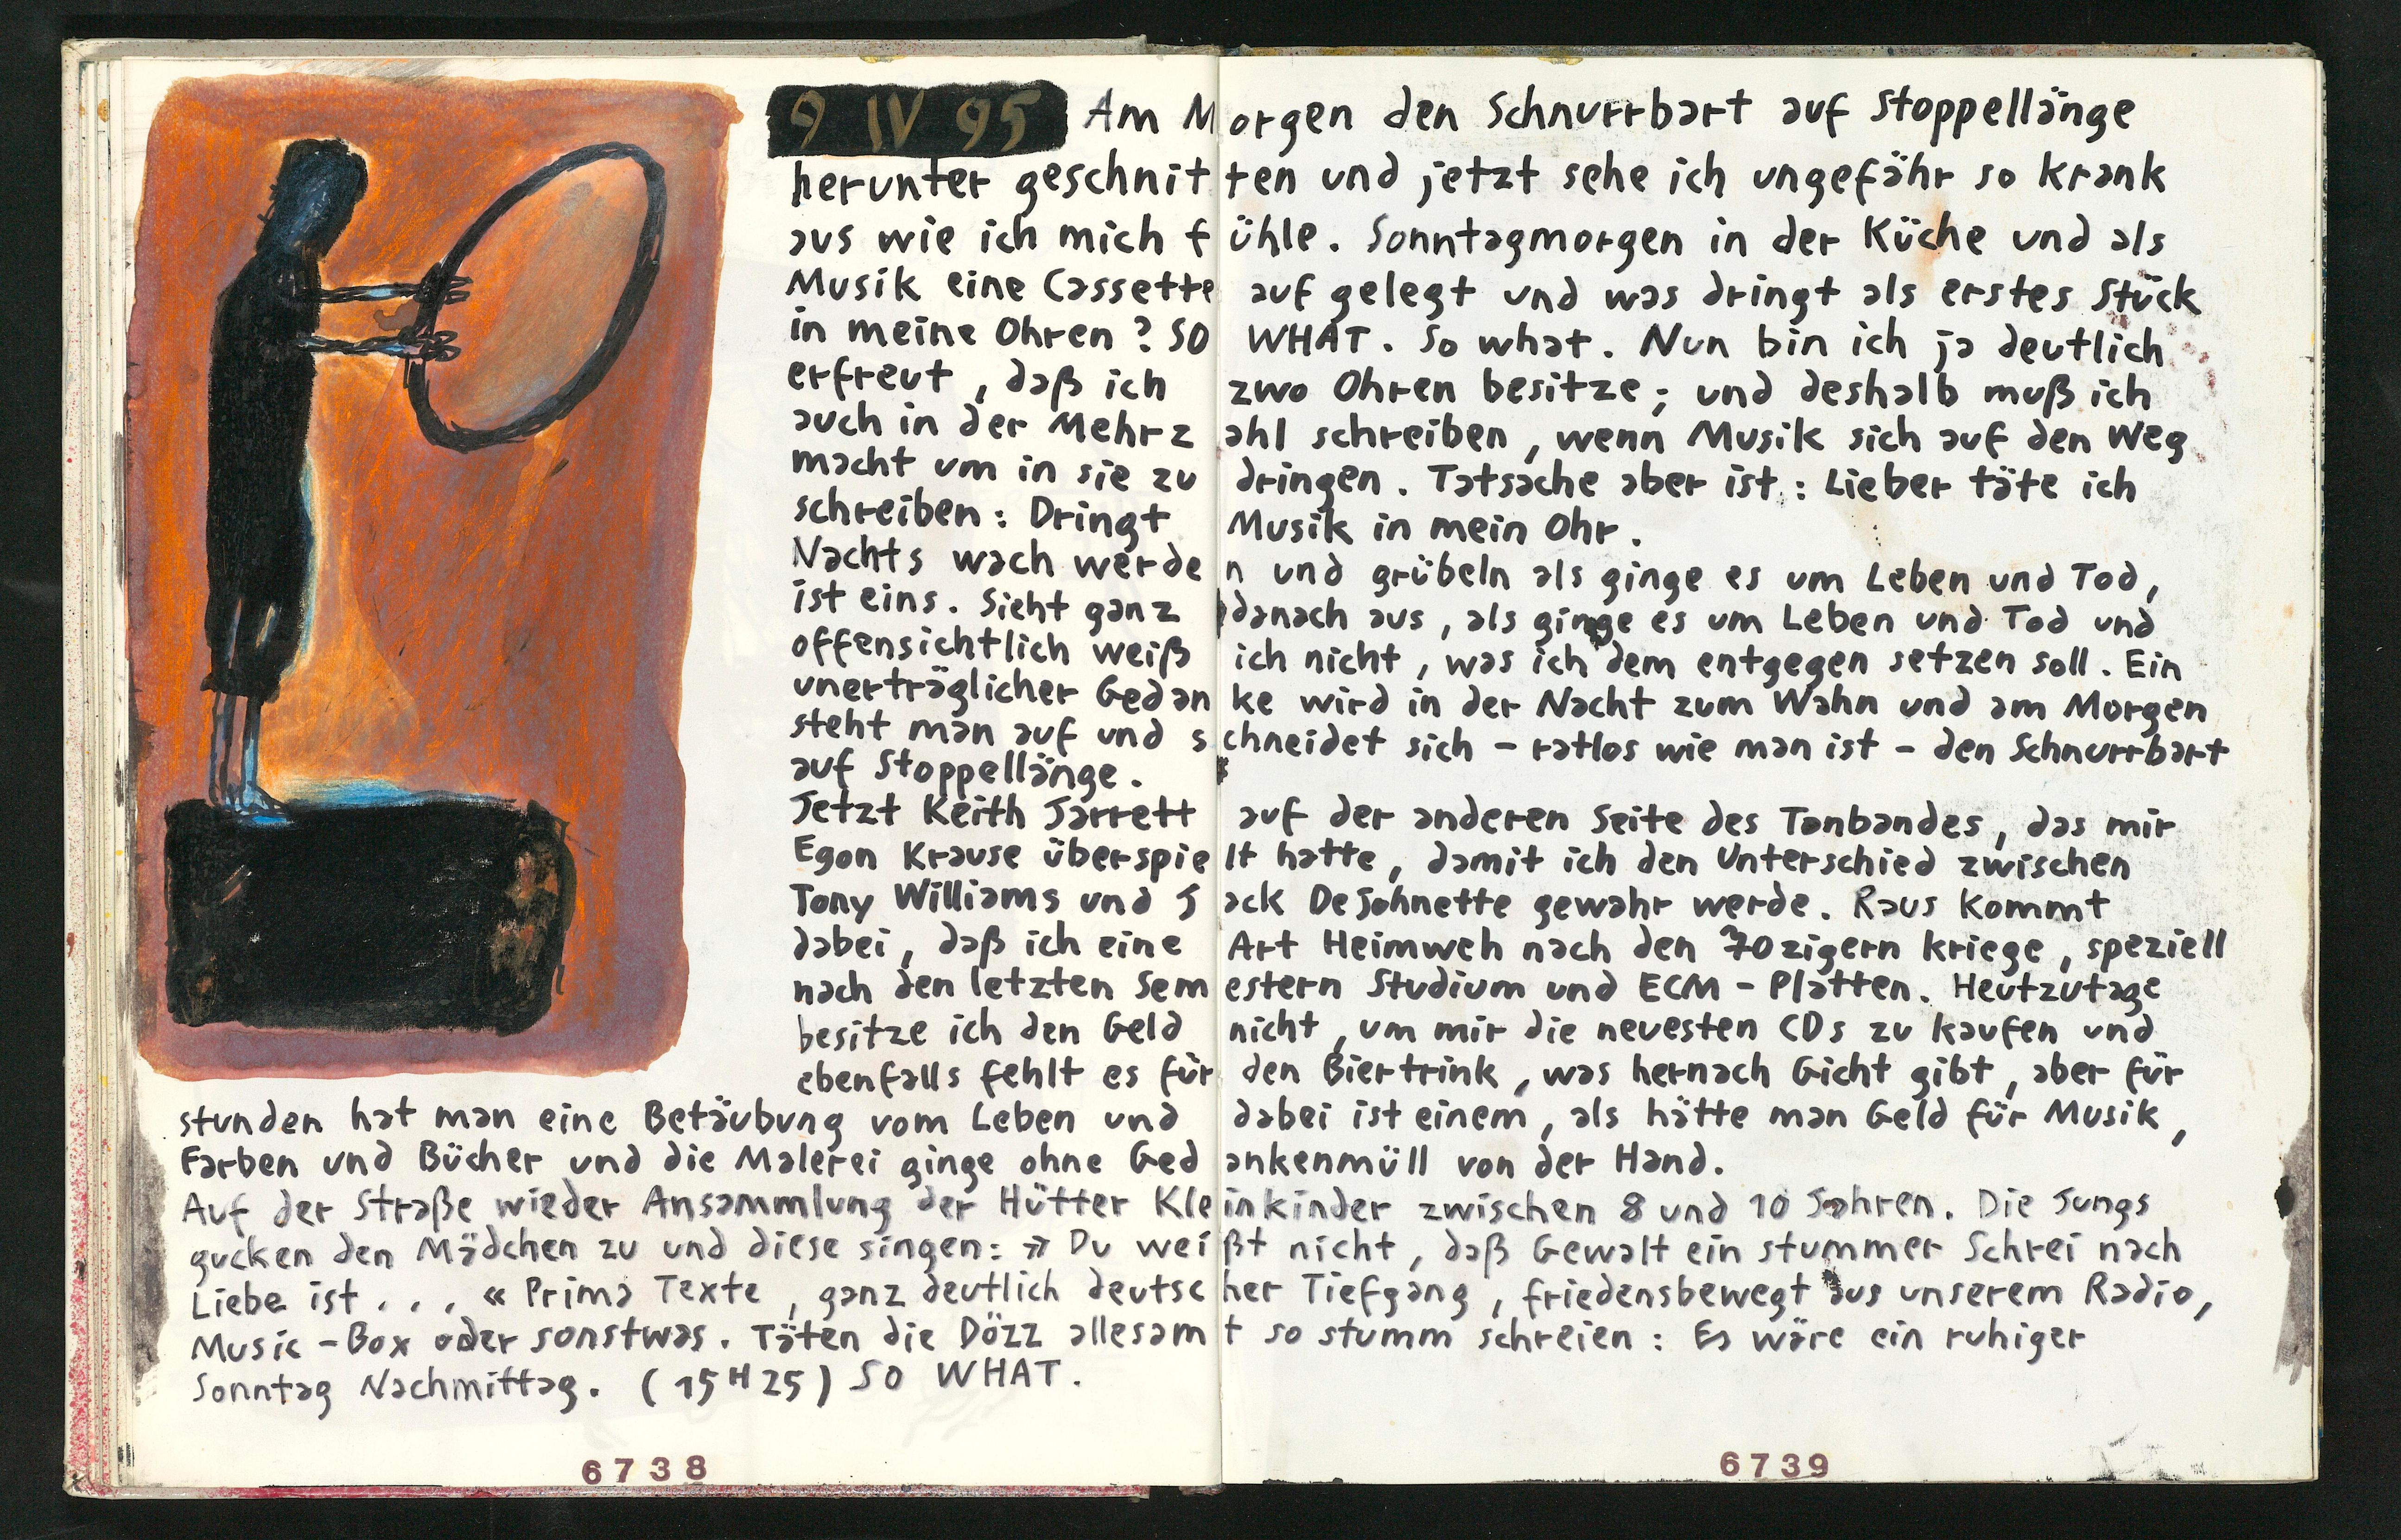 9 IV 95 Am Morgen den Schnurrbart auf Stoppellänge
herunter geschnitten und jetzt sehe ich ungefähr so krank
aus wie ich mich fühle. Sonntagmorgen in der Küche und als
Musik eine Cassette auf gelegt und was dringt als erstes Stück
in meine Ohren? SO WHAT. So what. Nun bin ich ja deutlich
erfreut, daß ich zwo Ohren besitze; und deshalb muß ich
auch in der Mehrzahl schreiben, wenn Musik sich auf den Weg
macht um in sie zu dringen. Tatsache aber ist: Lieber täte ich
schreiben: Dringt Musik in mein Ohr.
Nachts wach werden und grübeln als ginge es um Leben und Tod,
ist eins. Sieht ganz danach aus, als ginge es um Leben und Tod und
offensichtlich weiß ich nicht, was ich dem entgegen setzen soll. Ein
unerträglicher Gedanke wird in der Nacht zum Wahn und am Morgen
steht man auf und schneidet sich – ratlos wie man ist – den Schnurrbart
auf Stoppellänge.
Jetzt Keith Jarrett auf der anderen Seite des Tonbandes, das mir
Egon Krause überspielt hatte, damit ich den Unterschied zwischen
Tony Williams und Jack DeJohnette gewahr werde. Raus kommt
dabei, daß ich eine Art Heimweh nach den 70zigern kriege, speziell
nach den letzten Semestern Studium und ECM-Platten. Heutzutage
besitze ich den Geld nicht, um mir die neuesten CDs zu kaufen und
ebenfalls fehlt es für den Biertrink, was hernach Gicht gibt, aber für
stunden hat man eine Betäubung vom Leben und dabei ist einem, als hätte man Geld für Musik,
Farben und Bücher und die Malerei ginge ohne Gedankenmüll von der Hand.
Auf der Straße wieder Ansammlung der Hütter Kleinkinder zwischen 8 und 10 Jahren. Die Jungs
gucken den Mädchen zu und diese singen: » Du weißt nicht, daß Gewalt ein stummer Schrei nach
Liebe ist . . . « Prima Texte, ganz deutlich deutscher Tiefgang, friedensbewegt aus unserem Radio,
Music-Box oder sonstwas. Täten die Dözz allesamt so stumm schreien: Es wäre ein ruhiger
Sonntag Nachmittag. (15 H 25) SO WHAT.
6738
6739